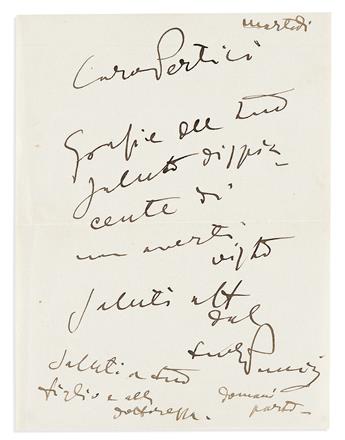 martedi
Caro Pertici
Grazie del tuo
saluto dispia-
cente di
non averti
visto
Saluti aff
dal
tuo Puccini
Saluti a tuo
figlio e alla
dottoressa.
domani
parto